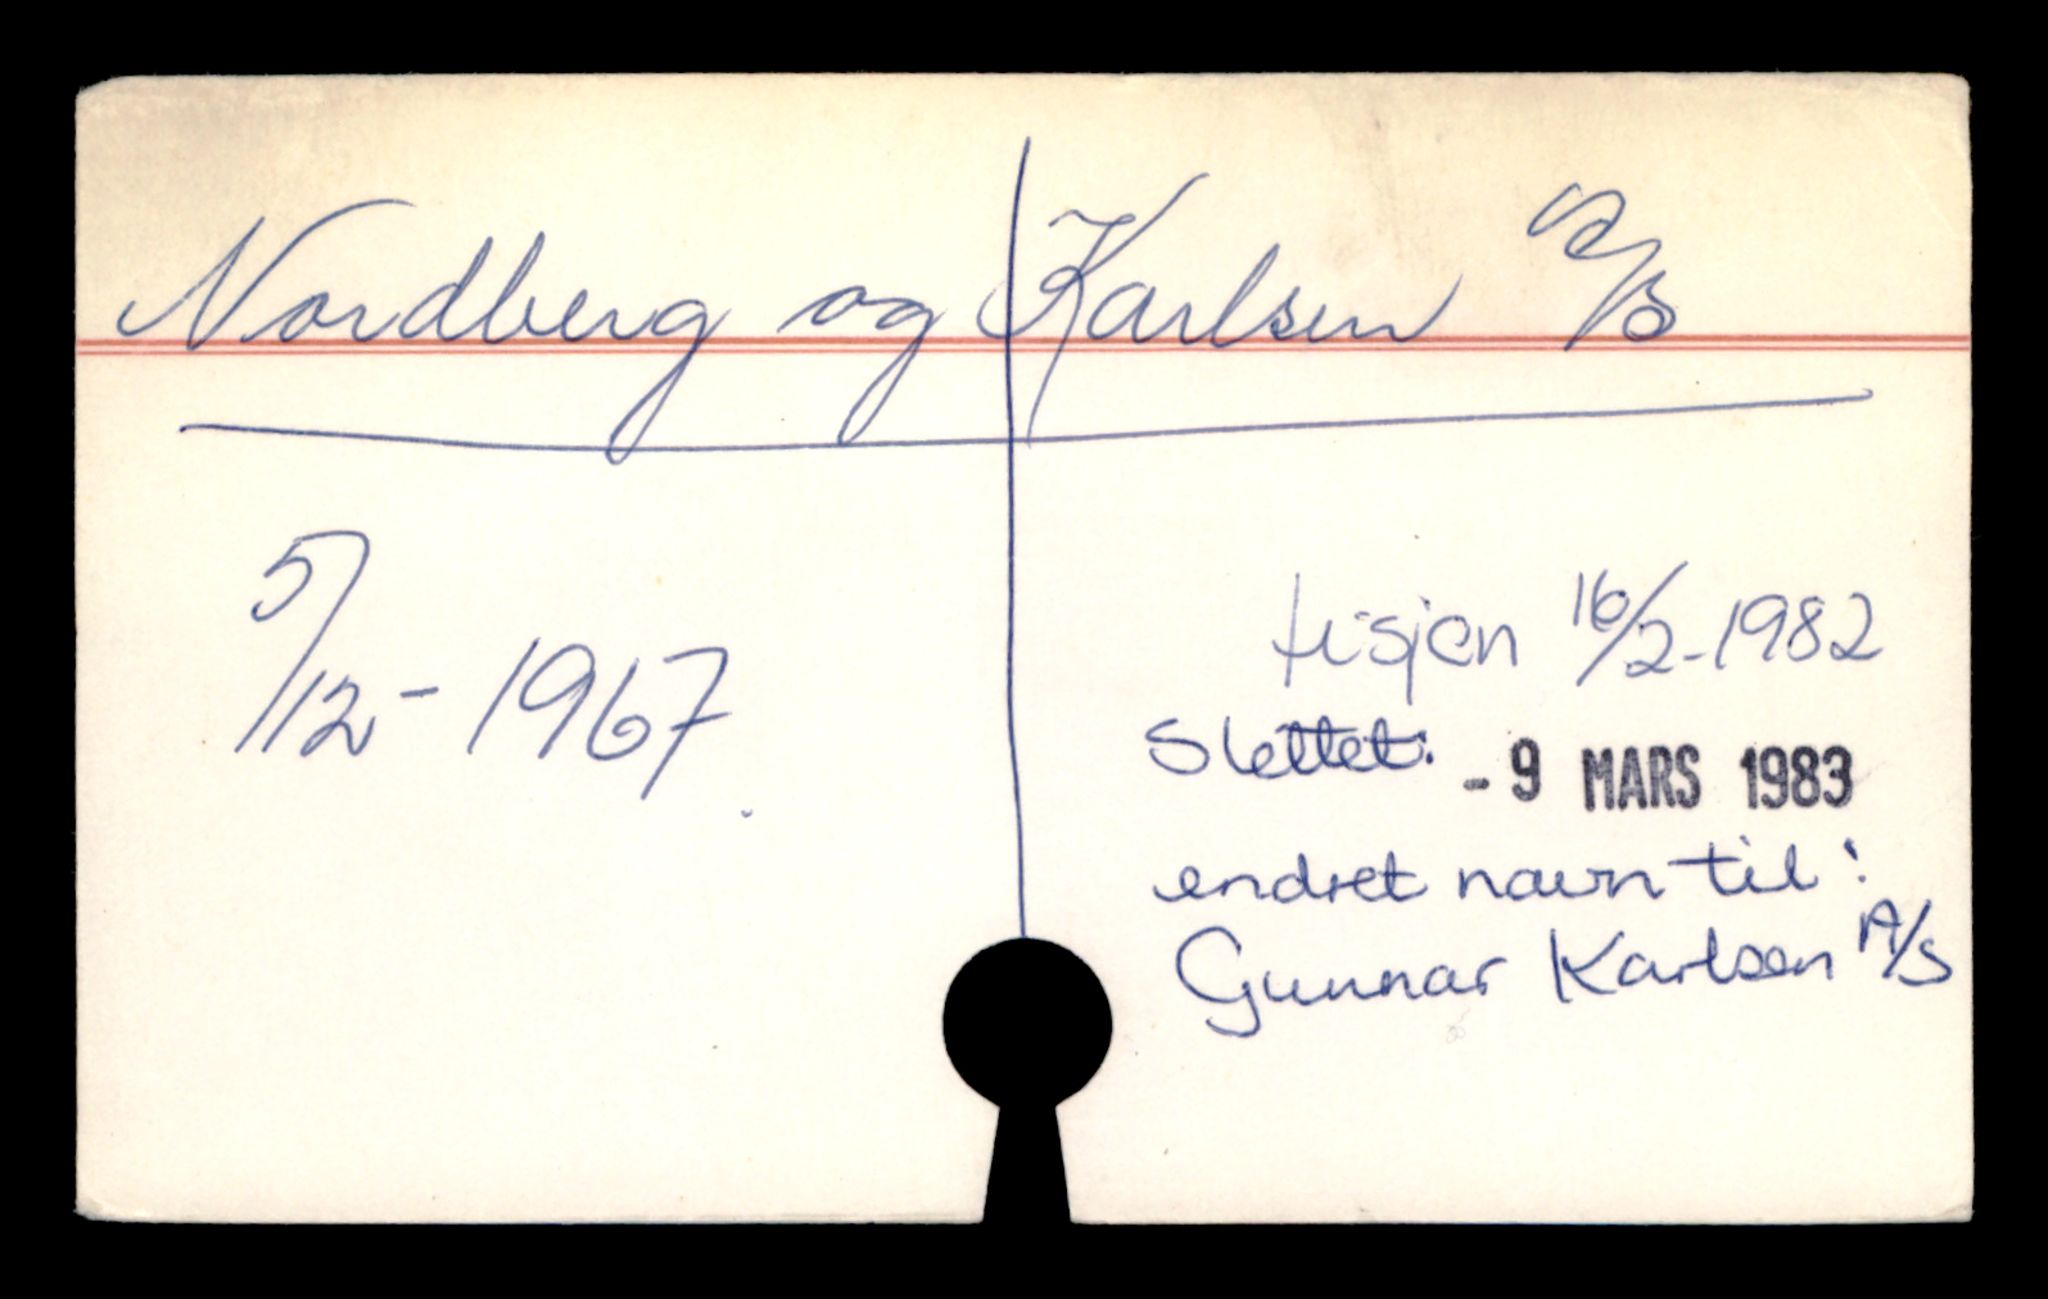 Nordberg og Karlsen A/S
5/12 - 1967
tilsjen 16/2-1982
Slettet: - 9 MARS 1983
endret navn til:
Gunnar Karlsen A/S